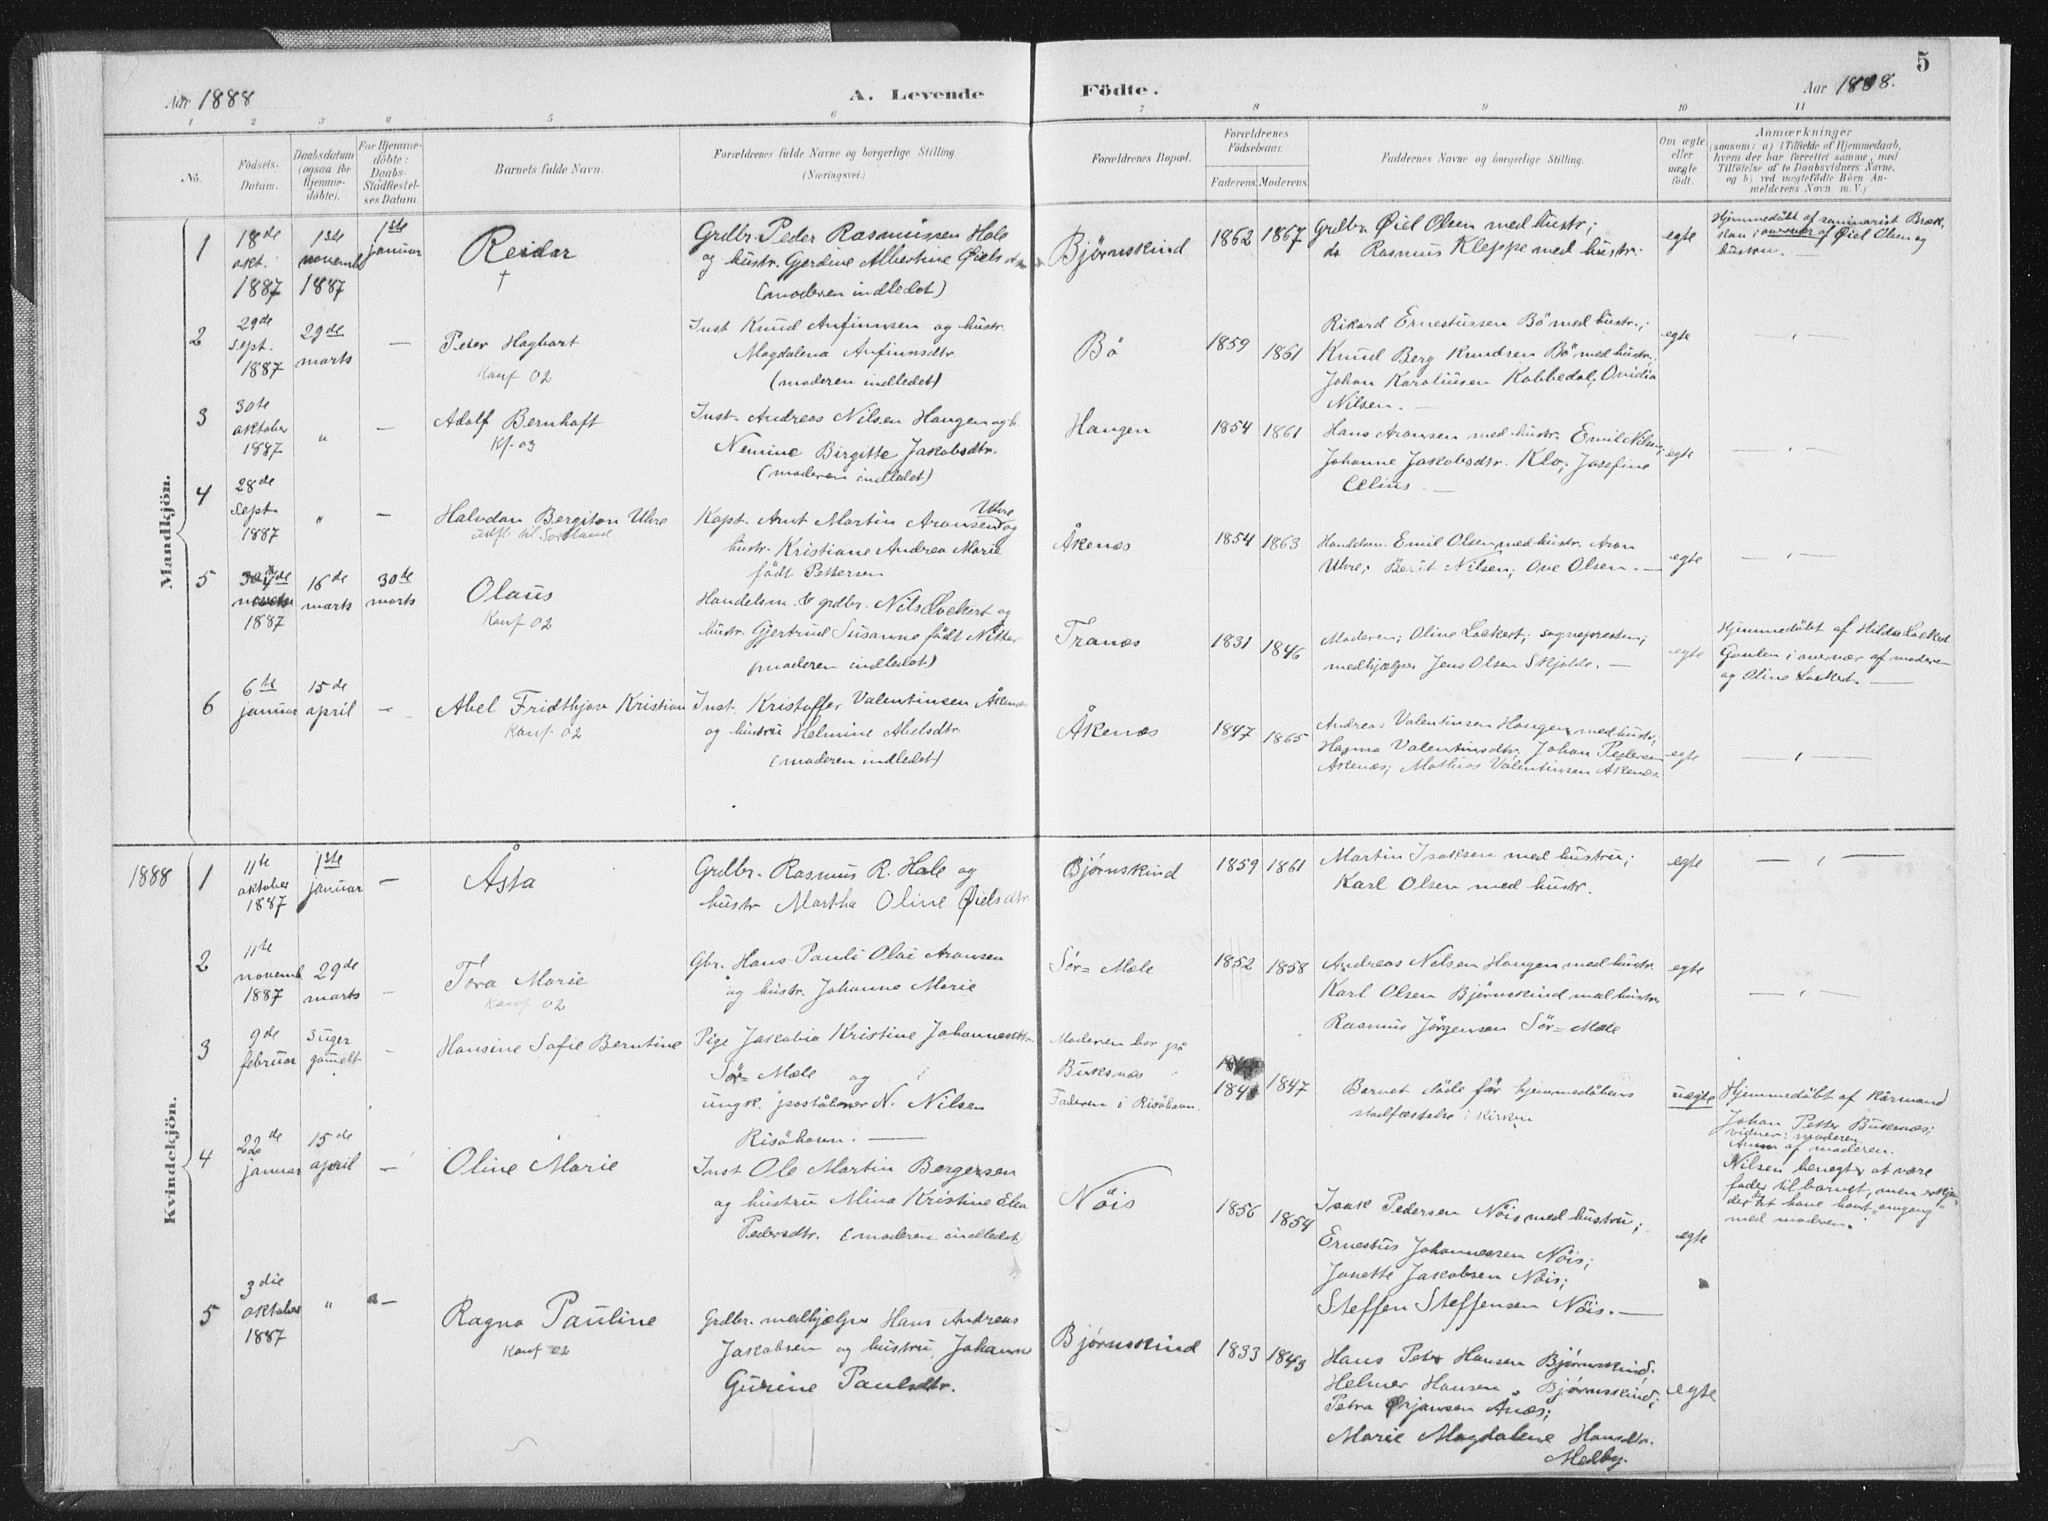 5
Aar 1888
A. Levende
Födte.
Aar 1888.
1 2 3 4 5 6 7 8 9 10 11
No.
Födsels-
Datum.
Daabsdatum
(ogsaa for
Hjemme-
döbte).
For Hjemme-
döbte:
Daabs-
Stadfæstel-
ses Datum.
Barnets fulde Navn.
Forældrenes fulde Navne og borgerlige Stilling.
(Næringsvei.)
Forældrenes Bopæl.
Forældrenes
Födselsaar.
Faderens. Moderens.
Faddernes Navne og borgerlige Stilling.
Om ægte
eller
uægte
födt.
Anmærkninger
(saasom: a) i Tilfælde af Hjemmedaab,
hvem der har forrettet samme, med
Tilföielse af to Daabsvidners Navne,
og b) ved uægtefödte Börn An-
melderens Navn m. V.)
Mandkjön.
1
18de
okt.
1887
1ste
novemb
1887
1ste
januar
Reidar
†
Grdbr. Peder Rasmussen Hale
og hustr. Gjerdine Albertine Øielsdtr
(moderen indledet)
Bjørnskind
1862 1867
Grdbr. Øiel Olsen med hustr;
do Rasmus Kleppe med hustr.
egte
Hjemmedøbt af seminarist Bræk-
kan i overvær af Øiel Olsen og
hustru. —
2
29de
sept.
1887
29de
marts
—
Peter Hagbart
Konf 02
Inst Knud Anfinnsen og hustr.
Magdalena Anfinnsdtr.
(moderen indledet)
Bö
1859 1861
Rikard Ernestussen Bö med hustr.;
Knud Berg Knudsen Bö med hustr.;
Johan Karoliusen Kobbedal; Ovidia
Nilsen. —
egte
— " —
3
30te
oktober
1887
"
—
Adolf Bernhoft
Kf. 03
Inst. Andreas Nilsen Haugen og h.
Nemine Birgitte Jakobsdtr.
(moderen indledet)
Haugen
1854 1861
Hans Aronsen med hustr. Emil Nilsen,
Johanne Jakobsdtr. Klo; Josefine
Celius. —
egte
— " —
4
28de
sept.
1887
"
—
Halvdan Bergiton Uhre
utfl. til Sortland
Kapt. Arnt Martin Aronsen Uhre og
hustr. Kristiane Andrea Marie
født Pettersen
Åkenæs
1854 1863
Handelsm. Emil Olsen med hustr. Aron
Uhre; Berit Nilsen; Ove Olsen. —
egte
— " —
5
1887
16de
marts
30te
marts
Olaus
Konf 02
Handelsm. & grdbr. Nils Lockert og
hustr. Gjertrud Susanne født Nitter
(moderen indledet)
Tranæs
1831 1846
Moderen; Oline Lockert; sognepresten;
medhjælper Jens Olsen Skjolde. —
egte
Hjemmedöbt af Hilda Lockert
Gaulen i overvær af moderen
og Oline Lockert. —
6
6te
januar
15de
april
—
Abel Fridthjov Kristian
Konf 02
Inst. Kristoffer Valentinsen Åkenæs
og hustru Helmine Abelsdtr.
(moderen indledet)
Åkenæs
1847 1865
Andreas Valentinsen Haugen med hustr;
Hagna Valentinsdtr. Johan Pedersen
Åkenæs; Mathias Valentinsen Åkenæs.
egte
— " —
1888
Kvindekjön.
1
11te
oktober
1887
1ste
januar
—
Åsta
Grdbr. Rasmus R. Hole og
hustr Martha Oline Øielsdtr
Bjørnskind
1859 1861
Martin Isaksen med hustru;
Karl Olsen med hustr.
egte
— " —
2
11te
novemb
1887
29de
marts
—
Tora Marie
Konf 02
Gbr. Hans Pauli Olai Aronsen
og hustr. Johanne Marie
Sör-Mæle
1852 1858
Andreas Nilsen Haugen med hustr.
Karl Olsen Bjørnskind med hustr.
Rasmus Jørgensen Sör-Mæle
egte
— " —
3
9de
februar
3 uger
gamelt
—
Hansine Sofie Berntine
Pige Jakobia Kristine Johannesdtr.
Sör-Mæle og
ungk. poståbner N. Nilsen
Risöhavn. —
Moderen bor på
Buksnæs
Faderen i Risöhavn.
1847
Barnet døde før hjemmedåbens
stadfæstelse i kirken
uegte
Hjemmedöbt af Kårmand
Johan Petter Buksnæs;
vidner: moderen.
Anm af moderen.
Nilsen benegter at være
fader til barnet, men erkjen-
der at have havt "omgang"
med moderen.
4
22de
januar
15de
april
—
Oline Marie
Inst Ole Martin Bergersen
og hustru Mina Kristine Elen
Pedersdtr. (moderen indledet)
Nöis
1856 1854
Isak Pedersen Nöis med hustru;
Ernestus Johannessen Nöis;
Janette Jakobsen Nöis;
Steffen Steffensen Nöis. —
egte
5
3die
oktober
1887
"
—
Ragna Pauline
Konf 02
Grdbr. medhjælper Hans Andreas
Jakobsen og hustru, Johanne
Gurine Paulsdtr.
Bjørnskind
1833 1843
Hans Peter Hansen Bjørnskind;
Helmer Hansen, Bjørnskind;
Petra Ørjansen Ånæs;
Marie Magdalene Hansdtr.
Melby.
egte